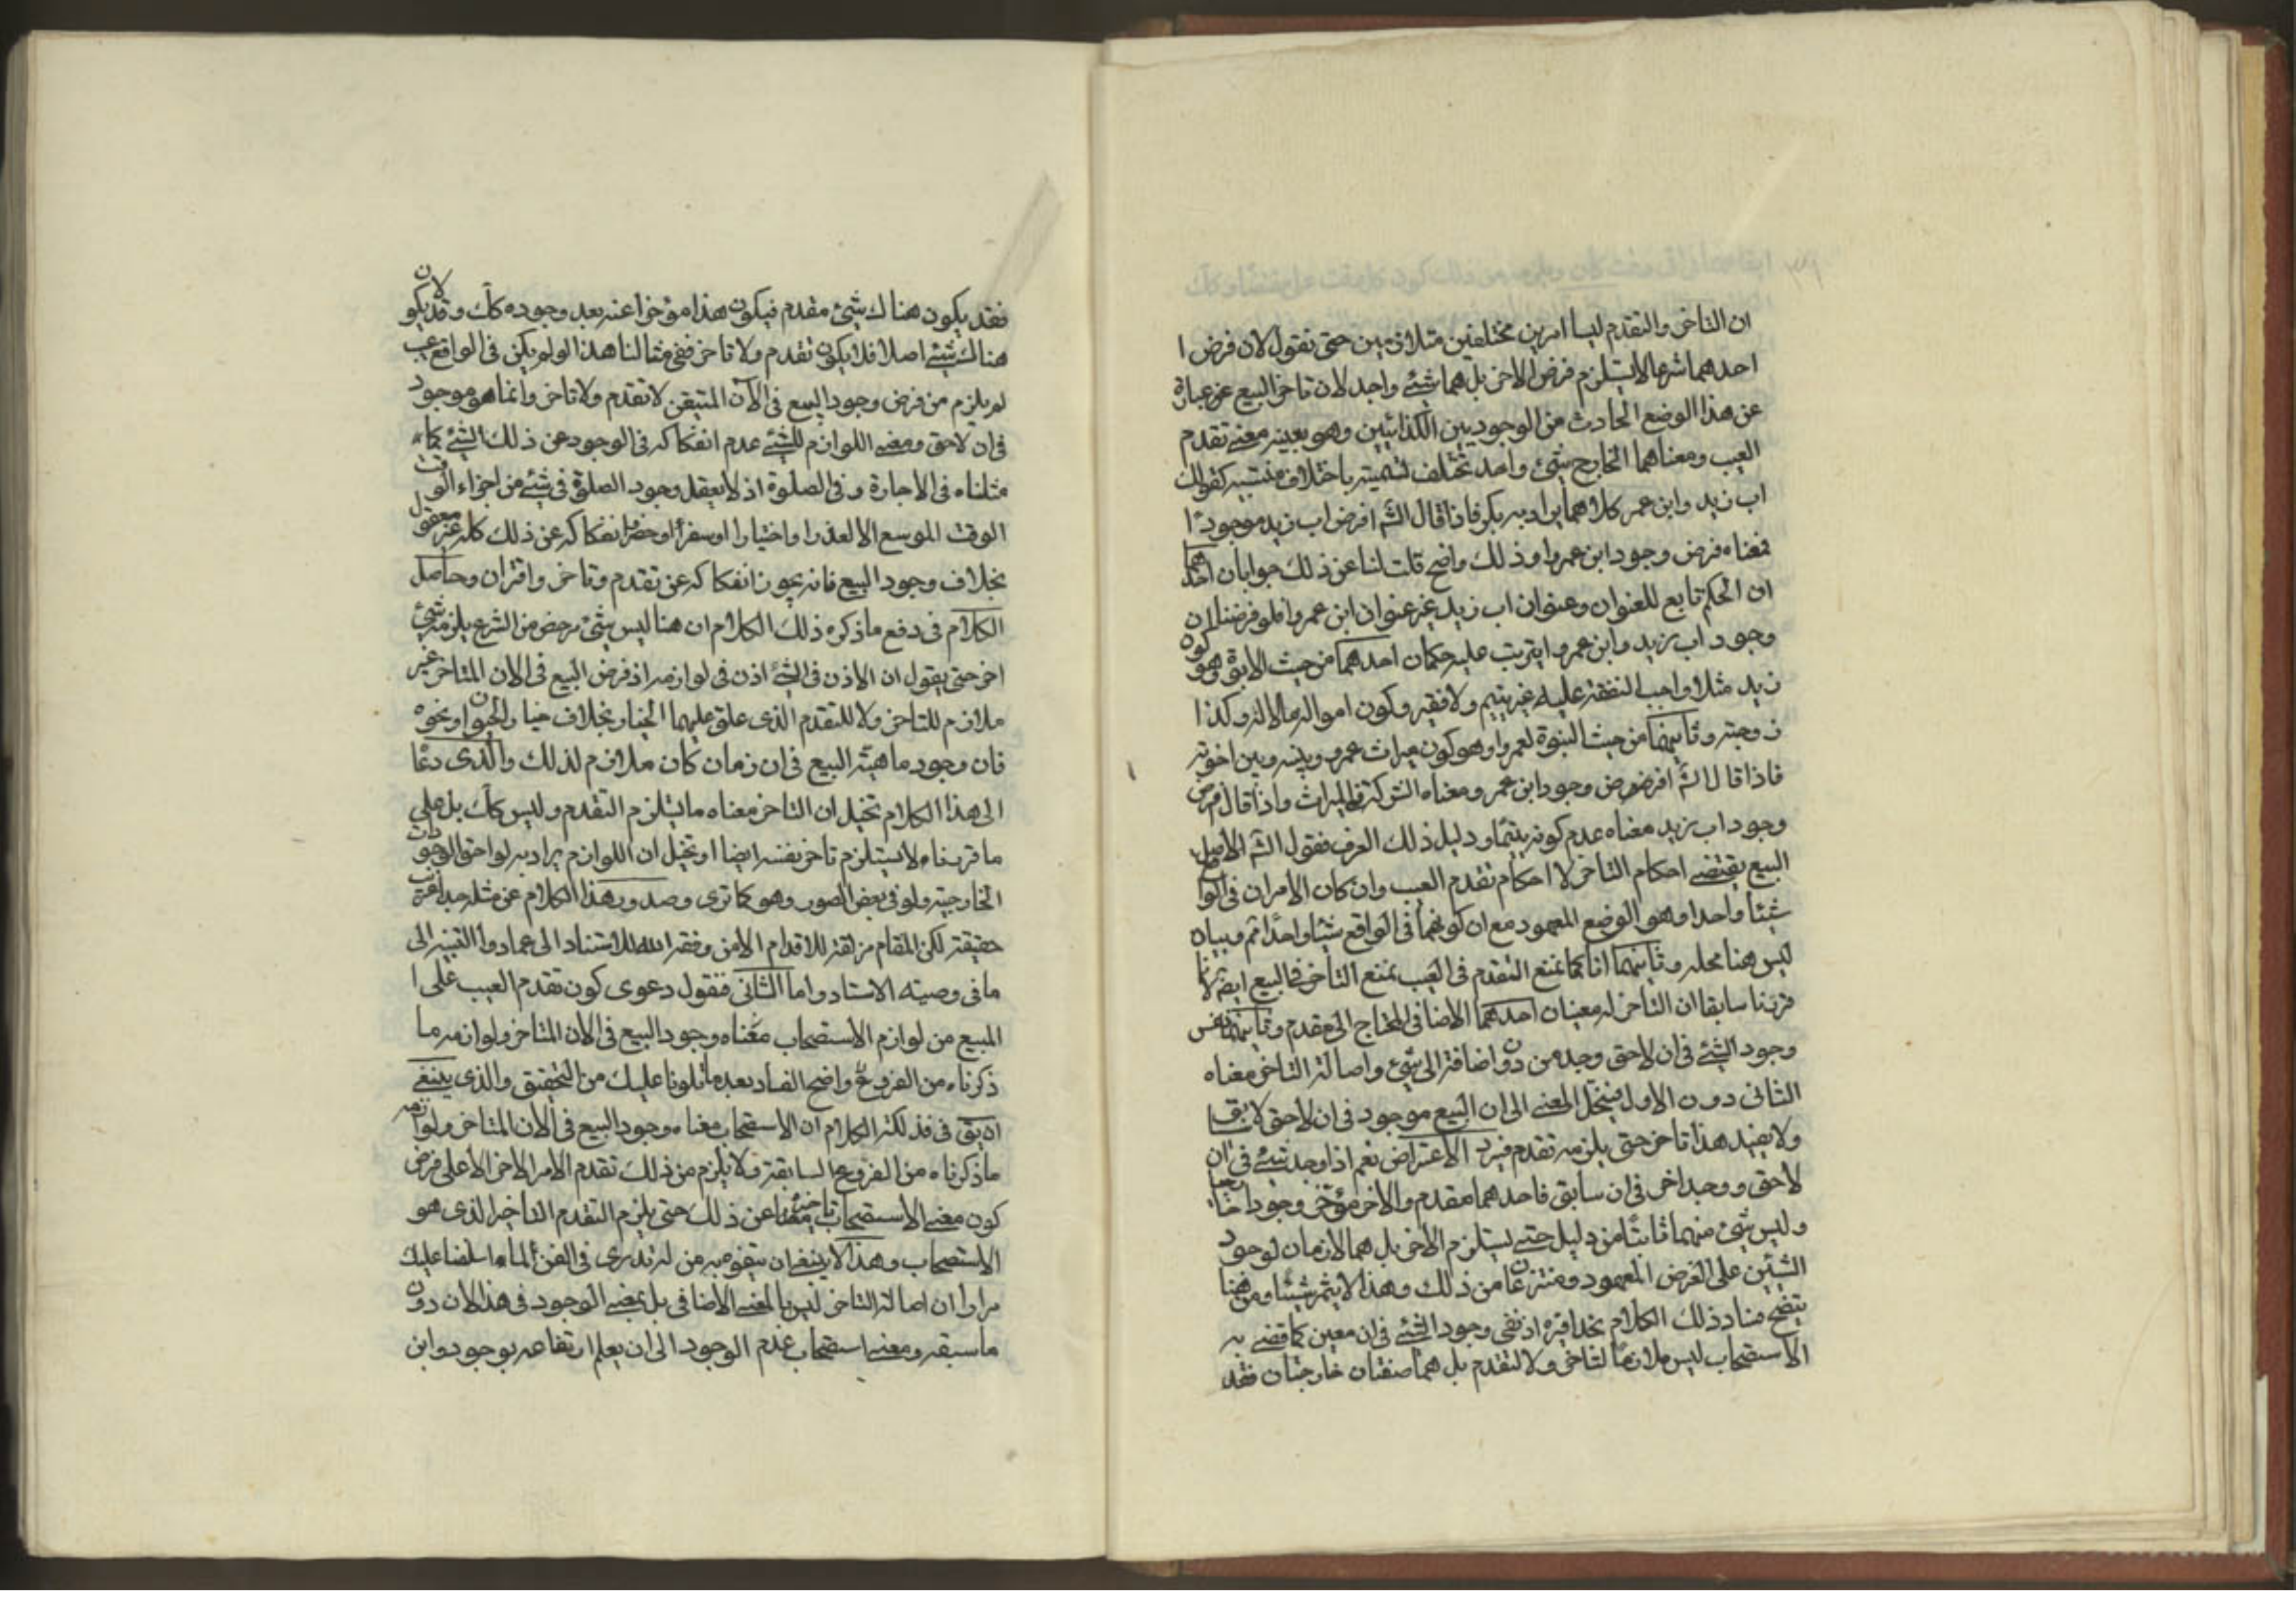 ان التاخر والتقدم ليسا امرين مختلفين متلازمين حتى نقول لان فرض ا
احدهما شرعا لا يستلزم فرض الاخر بل هما شيئ واحد لان تاخر البيع عبارة
عن هذا الوضع الحادث من الوجوديين الكذائيين وهو بعينه معنى تقدم
العيب ومعناهما الخارج شيئ واحد تختلف تسميته باختلاف منتسبيه كقولك
اب زيد وابن عمر كلاهما يراد به بكر فاذا قال الشه افرض اب زيد موجودا
فمعناه فرض وجود ابن عمرو وذلك واضح قلت لنا عن ذلك جوابان احدهما
ان الحكم تابع للعنوان وعنوان اب زيد غير عنوان ابن عمرو فلو فرضنا ان
وجود اب زيد وابن عمرو يترتب عليه حكمان احدهما من حيث الابوة وهو كون
زيد مثلا واجب النفقة عليه غير يتيم ولا فقير وكون امواله مالا له وكذا
زوجته وثانيهما من حيث البنوة لعمرو وهو كون ميراث عمرو بينه وبين اخوته
فاذا قال الشه افرض وجود ابن عمر ومعناه الشركة في الميراث واذا قال افرض
وجود اب زيد معناه عدم كونه يتيما ودليل ذلك العرف فنقول الشه الاصل
البيع يقتضى احكام التاخر لا احكام تقدم العيب وان كان الامران في الواقع
شيئا واحدا وهو الوضع المعهود مع ان كونهما في الواقع شيئا واحدا ثم وبيانه
ليس هنا محله وثانيهما انا كما نمنع التقدم في العيب نمنع التاخر في البيع ايضا لانا
قربنا سابقا ان التاخر له معنيان احدهما الاضافي المحتاج الى مقدم وثانيهما نفس
وجود الشئ في ان لاحق وحده من دون اضافة الى شئ واصالة التاخر معناه
الثاني دون الاول فينحل المعنى الى ان البيع موجود في ان لاحق لا سابق
ولا يفيد هذا تاخر حتى يلزمه تقدم فيرد الاعتراض نعم اذا وجد شئ في ان
لاحق ووجد اخر في ان سابق فاحدهما مقدم والاخر مؤخر وجودا
وليس شئ منهما ثابتا من دليل حتى يستلزم الاخر بل هما لازمان لوجود
الشيئين على الفرض المعهود ومنتزعان من ذلك وهذا لا يثمر شيئا ومن هنا
يتضح فساد ذلك الكلام بحذافيره اذ نفى وجود الشئ في ان معين كما قضى به
الاستصحاب ليس ملازما لتاخر ولا لتقدم بل هما صفتان خارجتان فقد
فقد يكون هناك شئ مقدم فيكون هذا مؤخرا عنه بعد وجوده كك وقد لا يكون
هناك شئ اصلا فلا يكون تقدم ولا تاخر ففي مثالنا هذا لو لم يكن في الواقع عيب
لم يلزم من فرض وجود البيع في الآن المتيقن لا تقدم ولا تاخر وانما هو موجود
في ان لاحق ومعنى اللوازم للشئ عدم انفكاكه في الوجود عن ذلك الشئ كما
مثلناه في الاجارة وفي الصلوة اذ لا يعقل وجود الصلوة في شئ من اجزاء الوقت
الوقت الموسع الا لعذر او اختيارا او سفرا او حضرا نفكاكه عن ذلك كله غير معقول
بخلاف وجود البيع فانه يجوز انفكاكه عن تقدم وتاخر واقتران وحاصل
الكلام في دفع ما ذكره ذلك الكلام ان هنا ليس شئ مرخص من الشرع يلزمه شئ
اخر حتى يقول ان الاذن في الشئ اذن في لوازمه اذ فرض البيع في الان المتاخر غير
ملازم للتاخر ولا للتقدم الذى علق عليهما الخيار بخلاف خيار الحيوان ونحوه
فان وجود ماهية البيع في ان زمان كان ملازم لذلك والذى دعا
الى هذا الكلام تخيل ان التاخر معناه ما يستلزم التقدم وليس كك بل على
ما قربناه لا يستلزم تاخر نفسه ايضا او تخيل ان اللوازم يراد به لواحق الوجودات
الخارجية ولو في بعض الصور وهو كما ترى وصدور هذا الكلام عن مثله جدا غريب
حقيقة لكن المقام مزلقة للاقدام الا من وفقه الله للاستناد الى عماد والتنبيه الى
ما في وصية الاستاد واما الثانى فنقول دعوى كون تقدم العيب على ا
المبيع من لوازم الاستصحاب معناه وجود البيع في الان المتاخر ولوازمه ما
ذكرناه من الفروع واضح الفساد بعد ما تلونا عليك من التحقيق والذى ينبغى
ان يق في فذلكة الكلام ان الاستصحاب معناه وجود البيع في الان المتاخر ولوازمه
ما ذكرناه من الفروع السابقة فلا يلزم من ذلك تقدم الامر الاخر الا على فرض
كون معنى الاستصحاب تاخير هذا عن ذلك حتى يلزم التقدم التاخير الذى هو
الاستصحاب وهذا لا ينبغى ان يتفوه به من له تدرى في الفن لما اسلفنا عليك
مرارا ان اصالة التاخر ليس بالمعنى الاضافى بل بمعنى الوجود في هذا الان دون
ما سبقه ومعنى استصحاب عدم الوجود الى ان يعلم ارتفاعه بوجود وابن